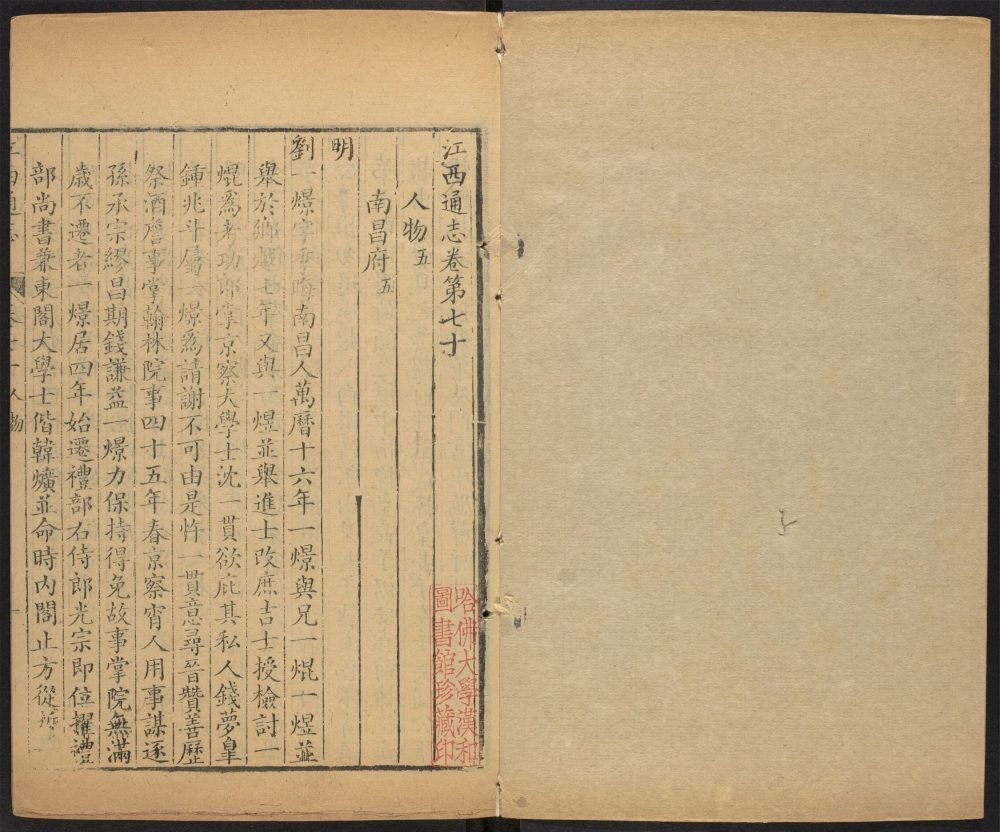 江西通志卷第七十
人物五
南昌府五
明
劉一燝字季晦南昌人萬曆十六年一燝與兄一焜一煜並
舉於鄉越七年又與一煜並舉進士改庶吉士授檢討一
焜為考功郎掌京察大學士沈一貫欲庇其私人錢夢皇
鍾兆斗屬一燝為請謝不可由是忤一貫意尋晉贊善歷
祭酒詹事掌翰林院事四十五年春京察宵人用事謀逐
孫承宗繆昌期錢謙益一燝力保持得免故事掌院無滿
歲不遷者一燝居四年始遷禮部右侍郎光宗即位擢禮
部尚書兼東閣大學士偕韓爌並命時內閣止方從哲
人物
哈佛大學漢和
圖書館珍藏印